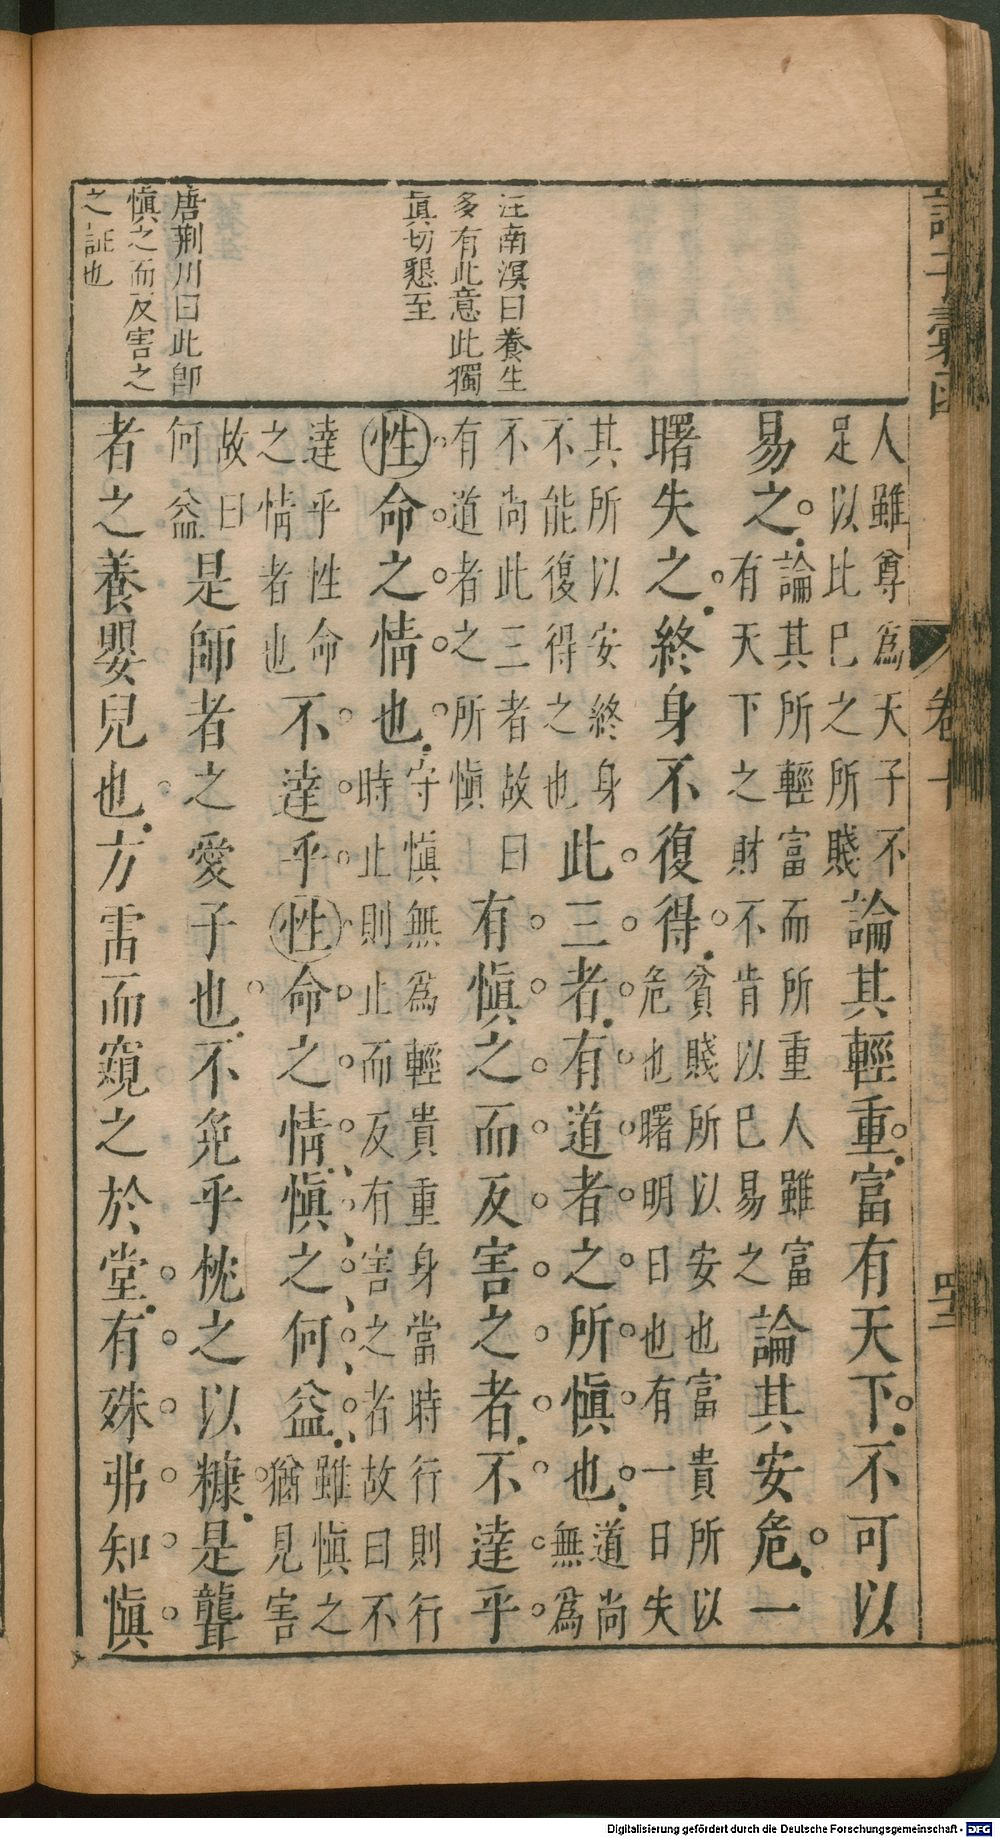 諸子彙函
卷十
汪南溟曰養生
多有此意此獨
眞切懇至
唐荆川曰此卽
愼之而反害之
之証也
人雖尊爲天子不
足以比已之所賤
論其輕重富有天下不可以
易之
論其所輕富而所重人雖富
有天下之財不肯以已易之
論其安危一
曙失之終身不復得
貧賤所以安也富貴所以
危也曙明日也有一日失
其所以安終身
不能復得之也
此三者有道者之所愼也
道尚
無爲
不尚此三者故曰
有道者之所愼
有愼之而反害之者不達乎
性命之情也
守愼無爲輕貴重身當時行則行
時止則止而反有害之者故曰不
達乎性命
之情者也
不達乎性命之情愼之何益
雖愼之
猶見害
故曰
何益
是師者之愛子也不免乎枕之以糠是聾
者之養嬰兒也方雷而窺之於堂有殊弗知愼
Digitalisierung gefördert durch die Deutsche Forschungsgemeinschaft - DFG